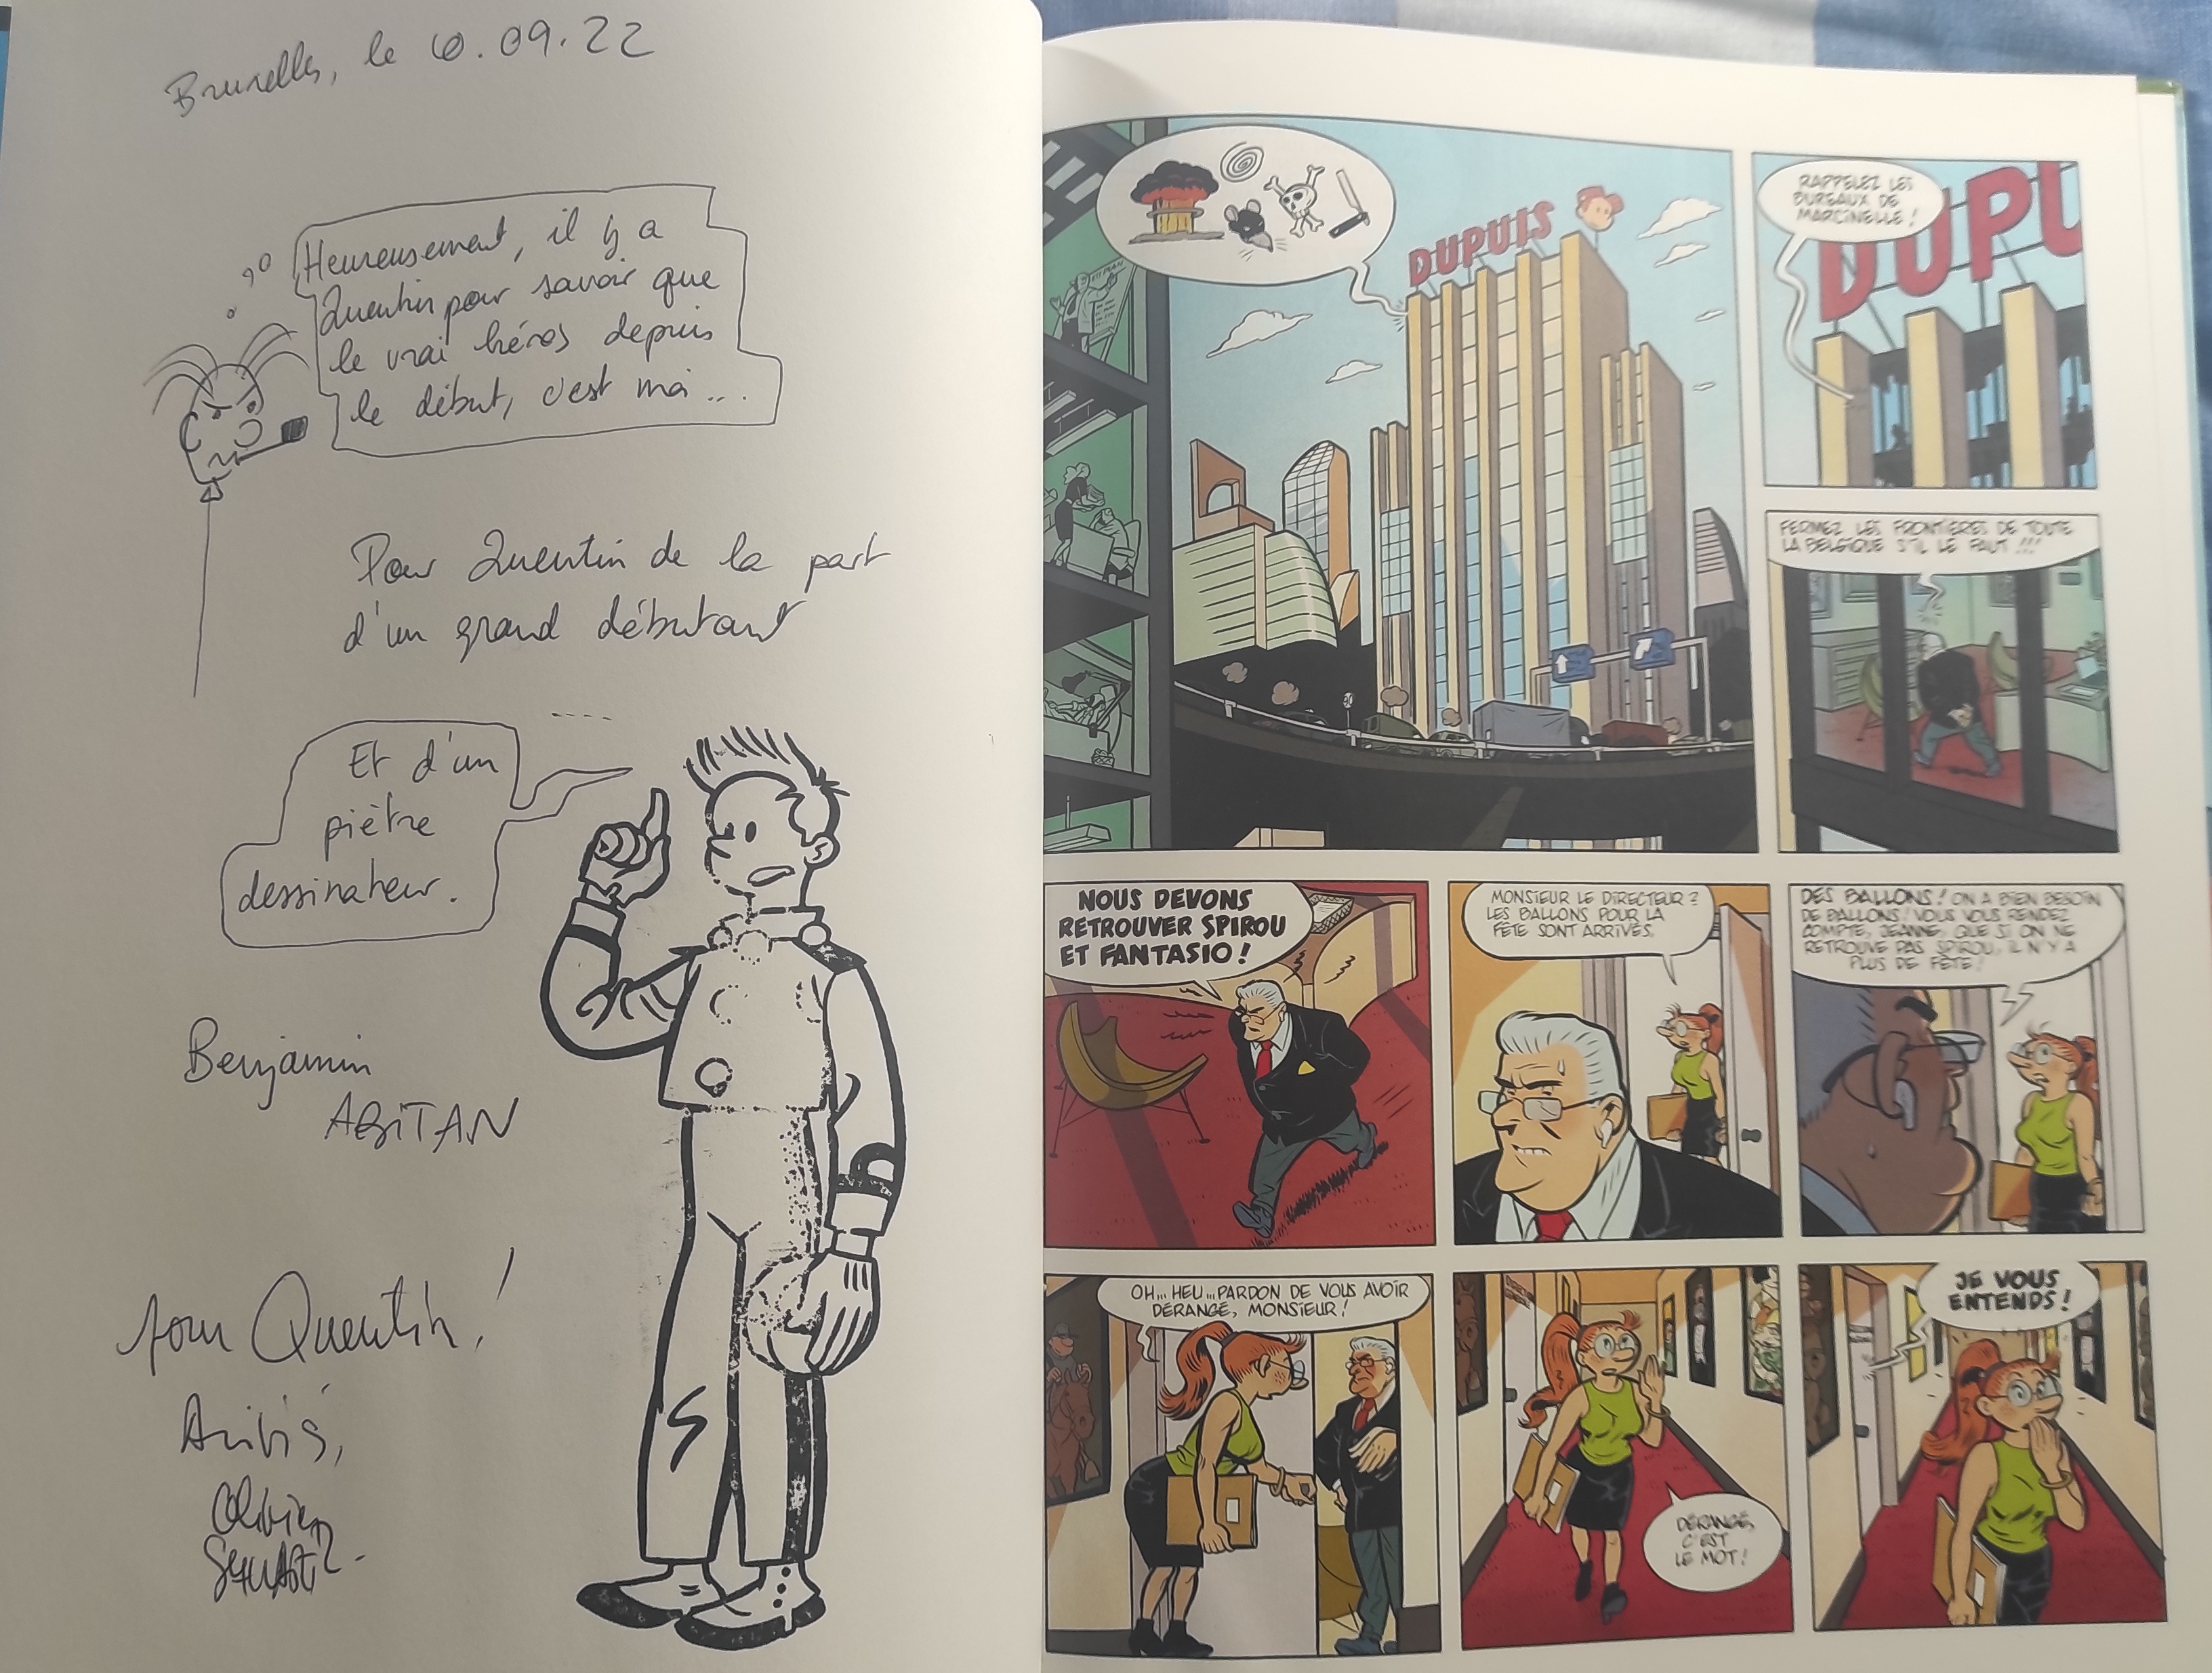 Bruxelles, le 10.09.22
Heureusement, il y a
Quentin pour savoir que
le vrai héros depuis
le début, c'est moi...
Pour Quentin de la part
d'un grand débutant
Et d'un
piètre
dessinateur.
Benjamin
ABiTAN
pour Quentin!
Olivier
DUPUIS
RAPPELEZ LES
BUREAUX DE
MARCINELLE !
DUPU
FERMEZ LES FRONTIÈRES DE TOUTE
LA BELGIQUE S'IL LE FAUT !!!
NOUS DEVONS
RETROUVER SPIROU
ET FANTASIO !
MONSIEUR LE DIRECTEUR ?
LES BALLONS POUR LA
FÊTE SONT ARRIVÉS.
DES BALLONS ! ON A BIEN BESOIN
DE BALLONS ! VOUS VOUS RENDEZ
COMPTE, JEANNE, QUE SI ON NE
RETROUVE PAS SPIROU, IL N'Y A
PLUS DE FÊTE !
OH... HEU... PARDON DE VOUS AVOIR
DÉRANGÉ, MONSIEUR !
DÉRANGÉ,
C'EST
LE MOT !
JE VOUS
ENTENDS !